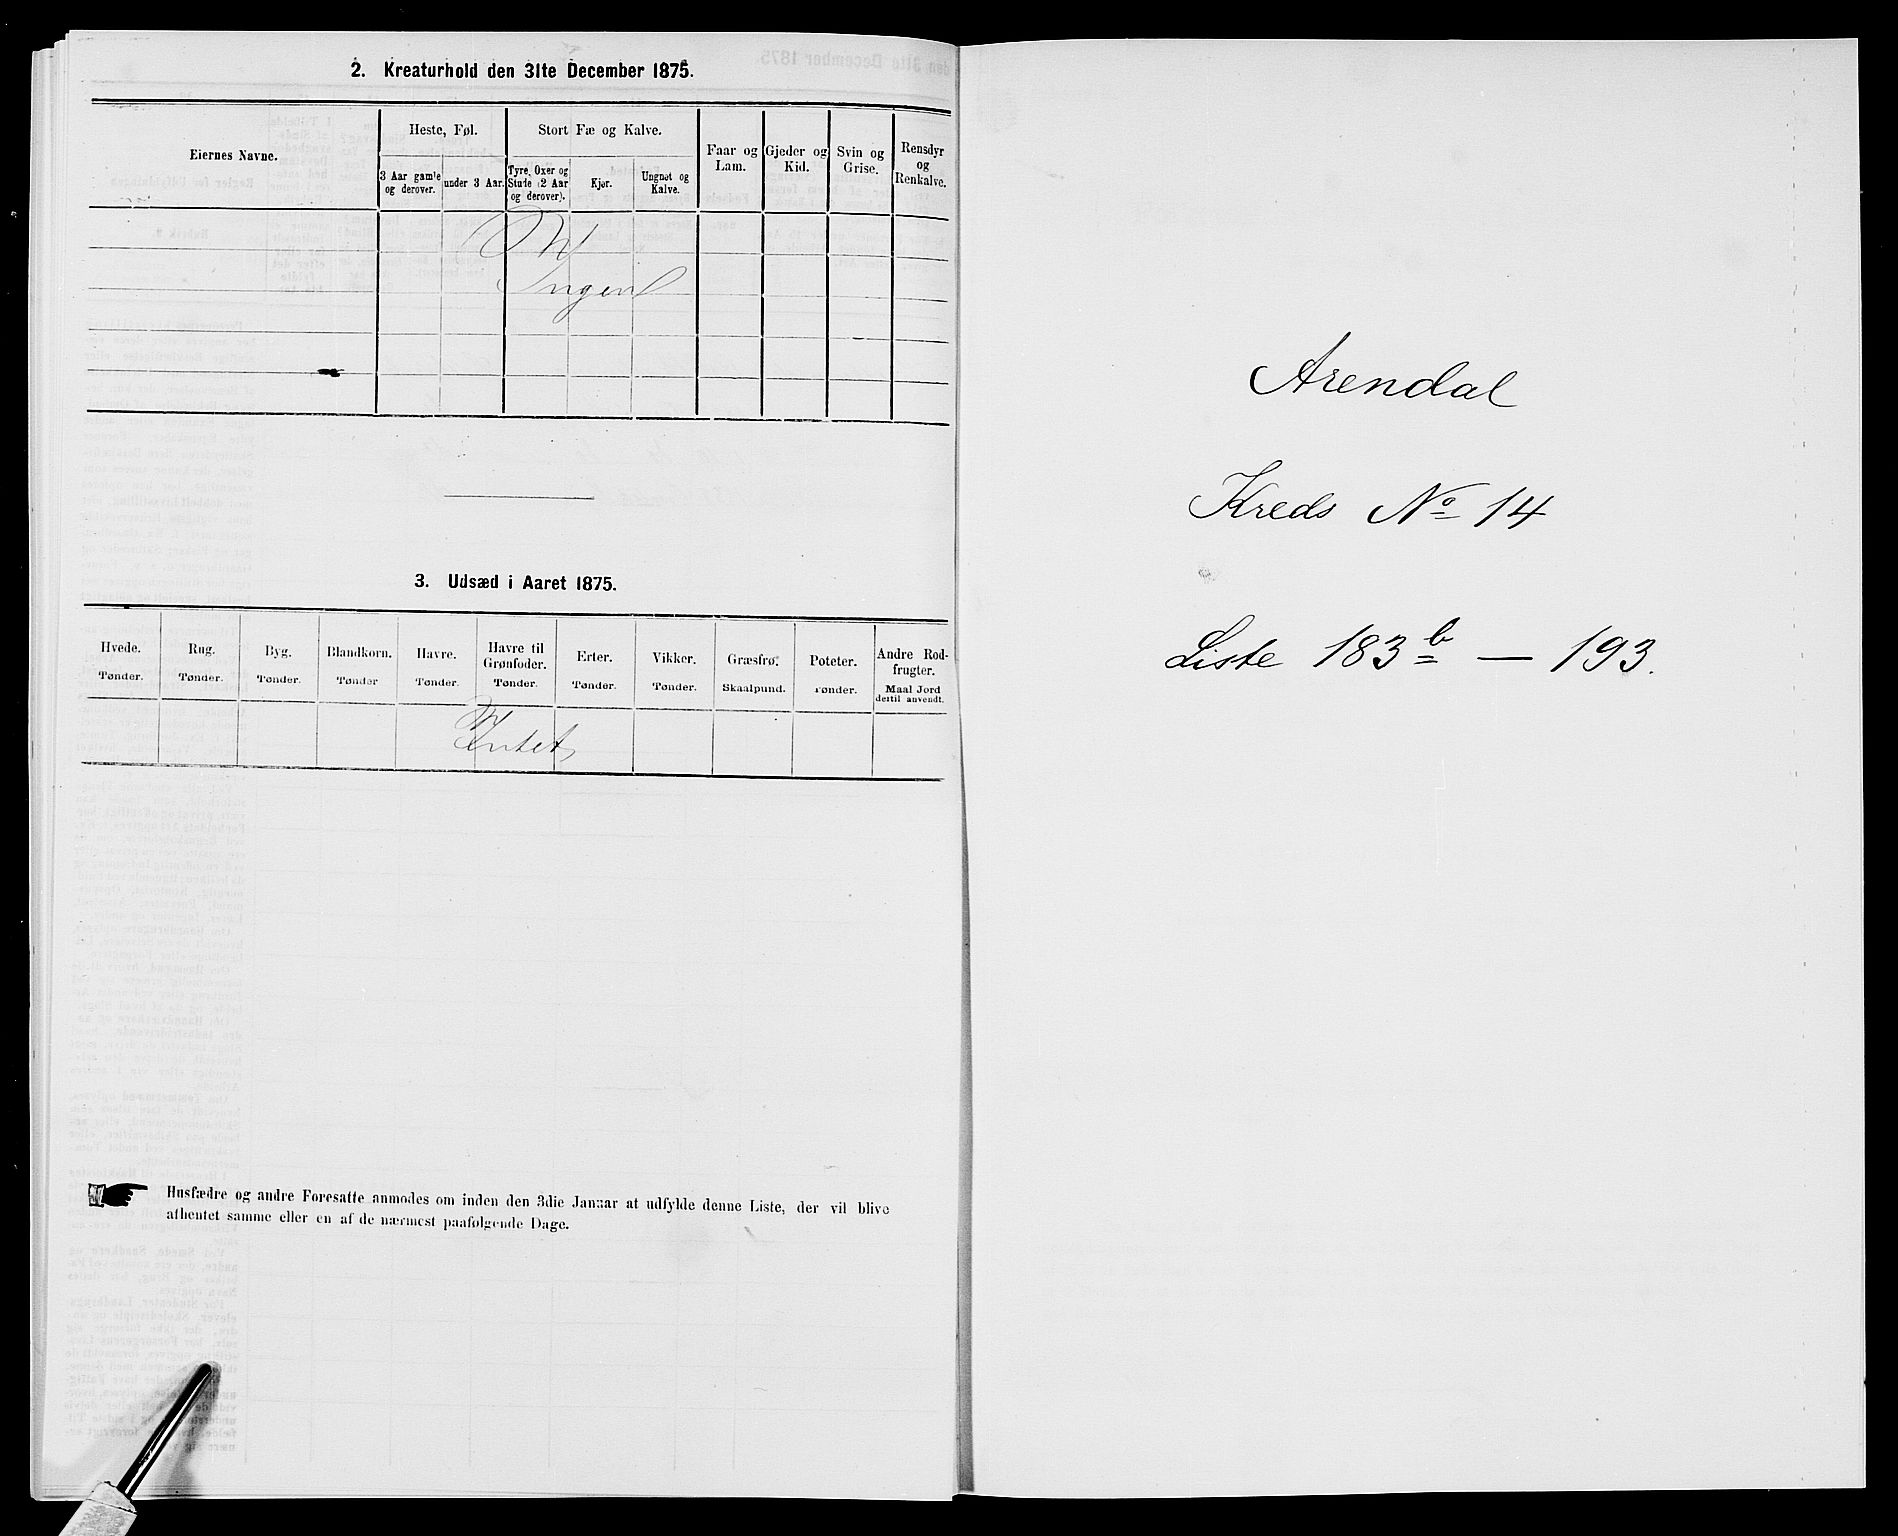 2. Kreaturhold den 31te December 1875.
Eiernes Navne.
Heste, Føl.
Stort Fæ og Kalve.
Faar og Lam.
Gjeder og Kid.
Svin og Grise.
Rensdyr og Renkalve.
3 Aar gamle og derover.
under 3 Aar.
Tyre, Oxer og Stude (2 Aar og derover).
Kjør.
Ungnøt og Kalve.
Ingen
3. Udsæd i Aaret 1875.
Hvede. Rug. Byg. Blandkorn. Havre. Havre til Grønfoder. Erter. Vikker. Græsfrø. Poteter. Andre Rodfrugter.
Tønder. Tønder. Tønder. Tønder Tønder. Tønder. Tønder. Tønder. Skaalpund. Tønder. Maal Jord dertil anvendt.
Intet
Husfædre og andre Foresatte anmodes om inden den 3die Januar at udfylde denne Liste, der vil blive
afhentet samme eller en af de nærmest paafølgende Dage.
Arendal
Kreds No 14
Liste 183 b — 193.